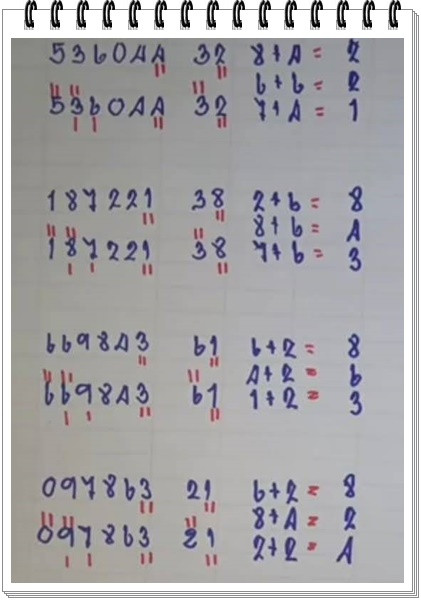 536044 32 8+4= 2
6+6= 2
536044 32 7+4= 1
187221 38 2+6= 8
8+6= 4
187221 38 7+6= 3
669843 61 6+2= 8
4+2= 6
669843 61 1+2= 3
097863 21 6+2= 8
8+4= 2
097863 21 2+2= 4